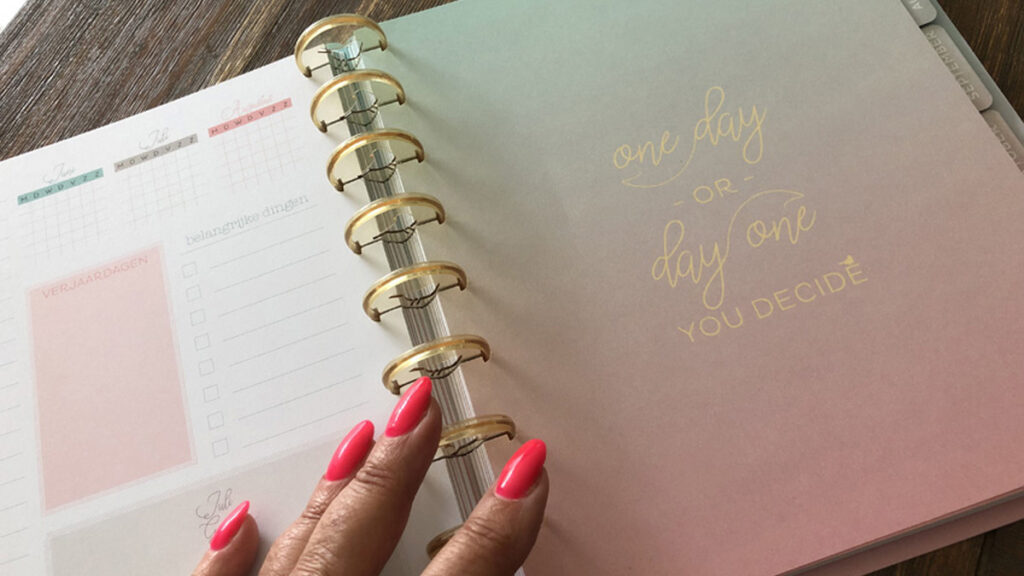 Juni
M D W D V Z Z
Juli
M D W D V Z Z
Augustus
M D W D V Z Z
belangrijke dingen
VERJAARDAGEN
Juli
one day
- OR -
day one
YOU DECIDE